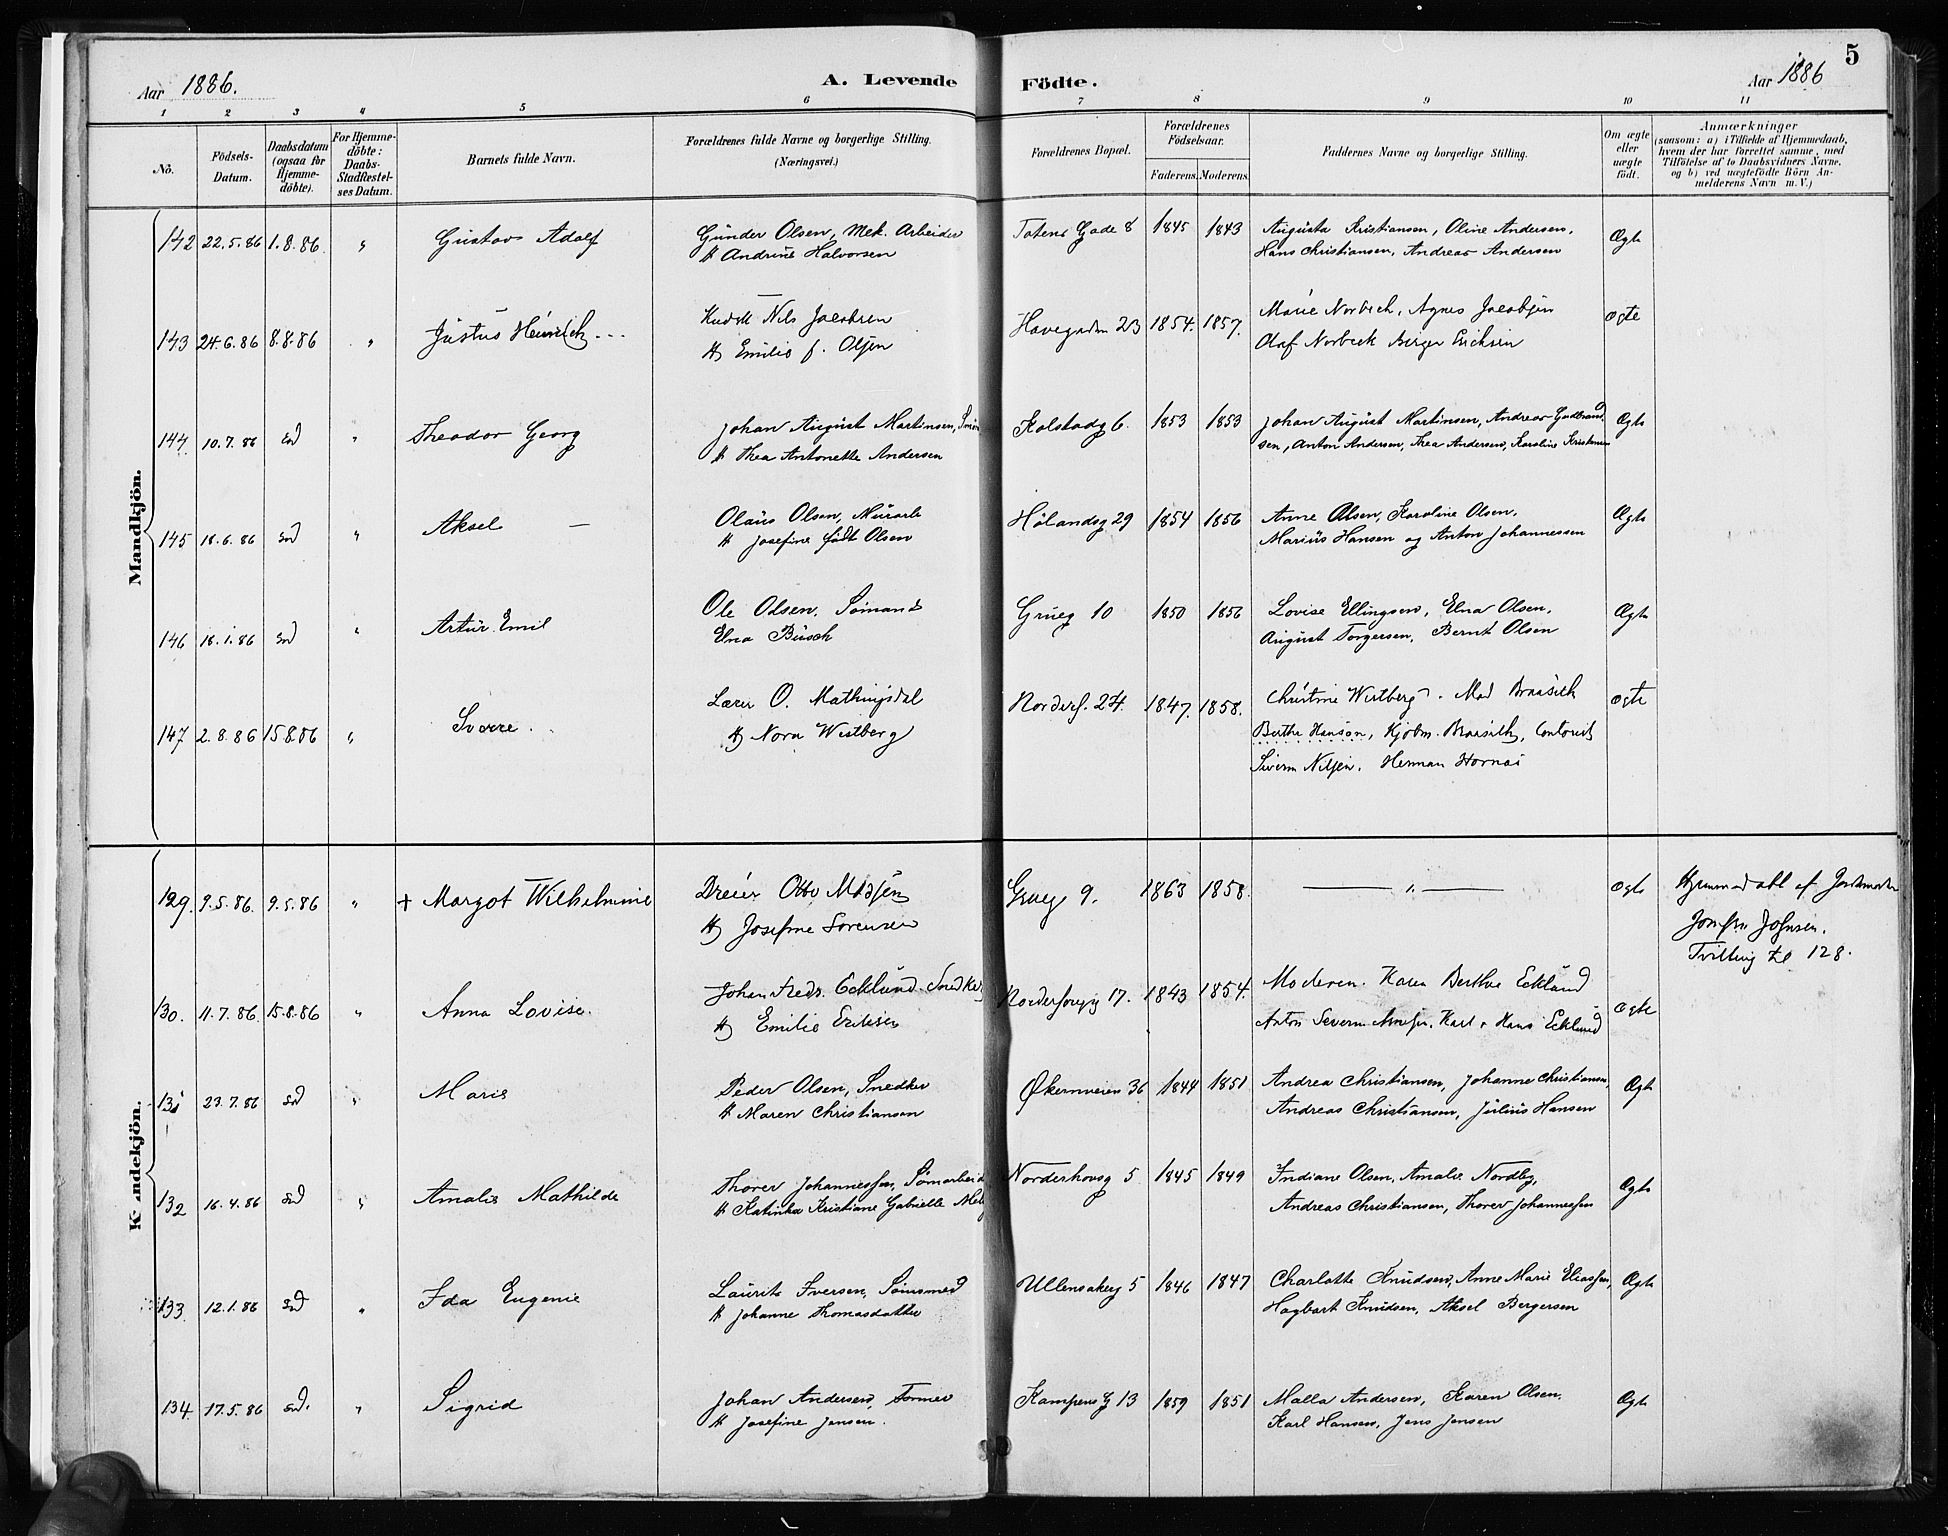 Aar 1886.
A. Levende Födte.
Aar 1886
5
1 2 3 4 5 6 7 8 9 10 11
No.
Födsels-Datum.
Daabsdatum (ogsaa for Hjemme-döbte).
For Hjemme-döbte: Daabs-Stadfæstel-ses Datum.
Barnets fulde Navn.
Forældrenes fulde Navne og borgerlige Stilling. (Næringsvei.)
Forældrenes Bopæl.
Forældrenes Födselsaar.
Faderens. Moderens.
Faddernes Navne og borgerlige Stilling.
Om ægte eller uægte födt.
Anmærkninger
(sansom: a) i Tilfælde af Hjemmedaab,
hvem der har forrettet samme, med
Tilföielse af to Daabsvidners Navne,
og b) ved uægtefödte Börn An-
melderens Navn m. V.)
Mandkjön.
142 22.5.86 1.8.86 " Gustav Adolf Gunder Olsen, Mek. Arbeider Totens Gade 8 1845 1843 Augusta Kristiansen, Oline Andersen, Ægte
H Andrine Halvorsen Hans Christiansen, Andreas Andersen
143 24.6.86 8.8.86 " Justus Heinrich Kudsk Nils Jacobsen Havegaden 23 1854. 1857. Marie Norbech, Agnes Jacobsen Ægte
H Emilie f. Olsen Olaf Norbeck Berger Erichsen
144 10.7.86 sd " Theodor Georg Johan August Martinsen, Kolstadg 6. 1853 1853 Johan August Martinsen, Andreas Gudbrand- Ægte
H Thea Antonette Andersen sen, Anton Andersen, Thea Andersen, Karoline Kristensen
145 18.6.86 sd " Aksel — Olaus Olsen, Murarb Hölandsg 29 1854 1856 Anne Olsen, Karoline Olsen, Ægte
H Josefine födt Olsen Marius Hansen og Anton Johannessen
146 18.1.86 sd " Artur Emil Ole Olsen, Sömand Grueg 10 1850 1856 Lovise Ellingsen, Elna Olsen, Ægte
Elna Busch August Torgersen, Bernt Olsen
147 2.8.86 15.8.86 " Sverre Lærer O. Mathingsdal Norderf. 24. 1847. 1858. Christine Wistberg. Mad Ægte
H Nora Wistberg Berthe Hansen, Kjöbm.
Nilsen. Herman
Kvindekjön.
129. 9.5.86. 9.5.86 " + Margot Wilhelmine Dreier Otto Madsen Grueg 9. 1863 1858. — " — Ægte Hjemmedöbt af Jordmoder
H Josefine Sörensen Johnsen.
Tvilling til 128.
130. 11.7.86. 15.8.86 " Anna Lovise. Johan Fredr. Ecklund Snedker 17. 1843 1854. Moderen. Karen Berthe Ecklund Ægte
H Emilie Eriksen Anton Severin Karl & Hans Ecklund
131 23.7.86 sd " Marie Peder Olsen, Snedker Økernveien 36 1844 1851 Andrea Christiansen, Johanne Christiansen, Ægte
H Maren Christiansen Andreas Christiansen, Julius Hansen
132 16.4.86 sd " Amalie Mathilde Thorer Johannessen, Norderhovsg 5 1845 1849 Indiane Olsen, Amalie Nordby, Ægte
H Katinka Kristiane Gabrielle Andreas Christiansen, Thorer Johannessen
133 12.1.86 sd " Ida Eugenie Laurits Iversen, Ullensakerg 5 1846 1847 Charlotte Knudsen, Anne Marie Eliassen, Ægte
H Johanne Thomasdatter Hagbart Knudsen, Aksel Bergersen
134. 17.5.86 sd. " Sigrid Johan Andersen, Former Kampens G 13 1859 1851 Malla Andersen, Karen Olsen. Ægte
H Josefine Jensen. Karl Hansen, Jens Jensen